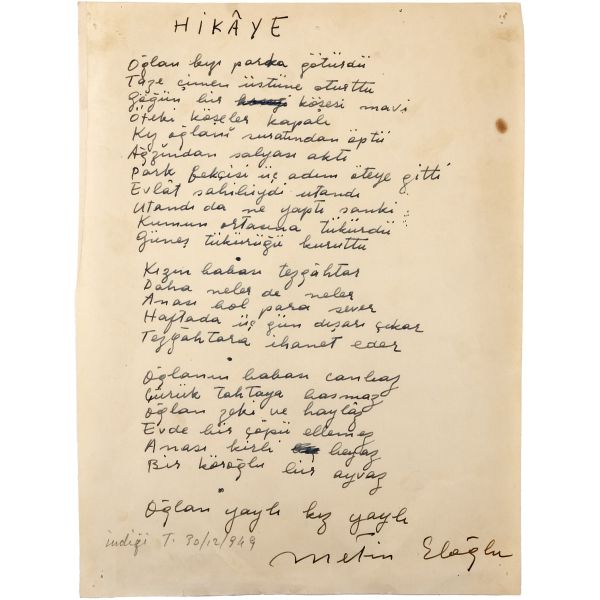 HİKÂYE
Oğlan kızı parka götürdü
Taze çimen üstüne oturttu
Göğün bir köşesi mavi
Öteki köşeler kapalı
Kız oğlanı suratından öptü
Ağzından salyası aktı
Park bekçisi üç adım öteye gitti
Evlât sahibiydi utandı
Utandı da ne yaptı sanki
Kumun ortasına tükürdü
Güneş tükürüğü kuruttu
Kızın babası tezgâhtar
Daha neler de neler
Anası bol para sever
Haftada üç gün dışarı çıkar
Tezgâhtara ihanet eder
Oğlanın babası canbaz
Çürük tahtaya basmaz
Oğlan zeki ve haylâz
Evde bir çöpü ellemez
Anası kirli beyaz
Bir köroğlu bir ayvaz
Oğlan yaylı kız yaylı
T. 30/12/949
Metin Eloğlu